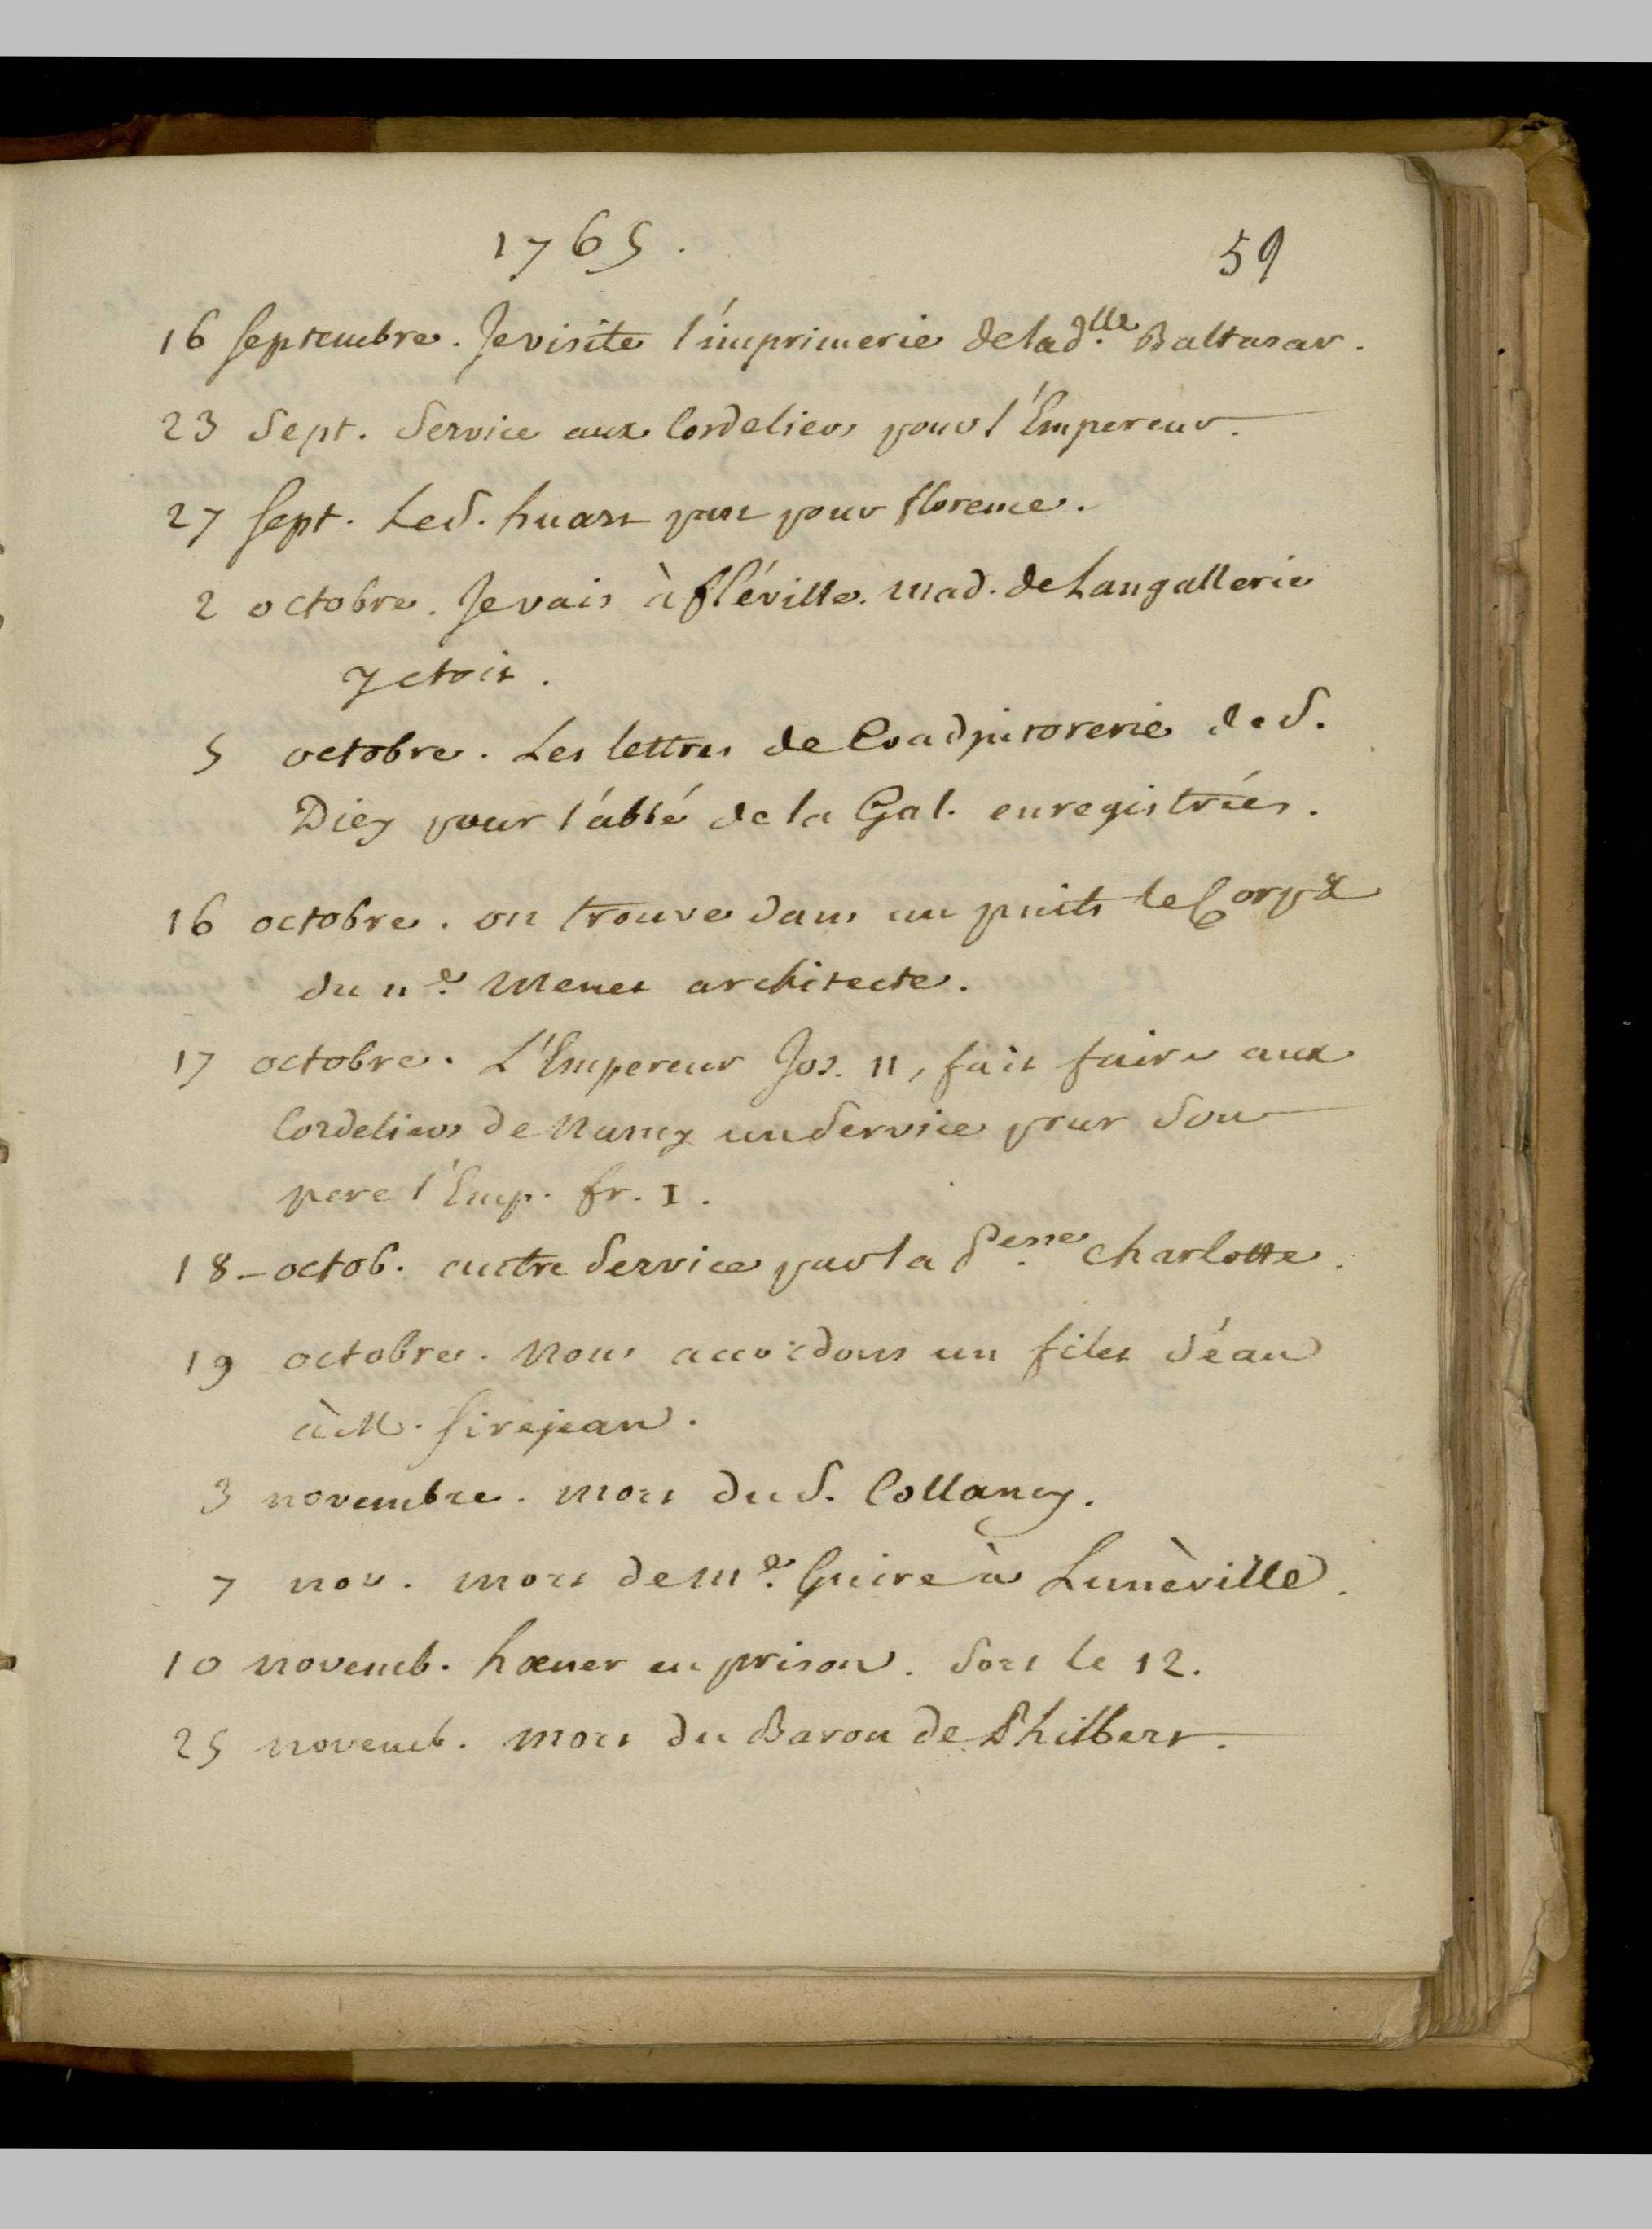 1765.
59
16 septembre. Je visite l'imprimerie de la d.lle Baltasar.
23 Sept. Service aux Cordeliers pour l'Empereur.
27 sept. Le S. huart part pour florence.
2 octobre. Je vais à fléville. Mad. de Langallerie
y etoit.
5 octobre. Les lettres de Coadjutorerie de S.
Diey pour l'abbé de la Gal. enregistrées.
16 octobre. on trouve dans un puits le Corps
du n.é Menet architecte.
17 octobre. L'Empereur Jos. II, fait faire aux
Cordeliers de Nancy un Service pour Son
pere l'Emp. fr. I.
18 - octob. autre Service par la P.esse Charlotte.
19 octobre. Nous accordons un filet d'eau
à M. sirejean.
3 novembre. mort du S. Collancy.
7 nov. mort de M.e Guire à Lunèville.
10 novemb. hœner en prison. Sort le 12.
25 novemb. mort du Baron de Philbert.